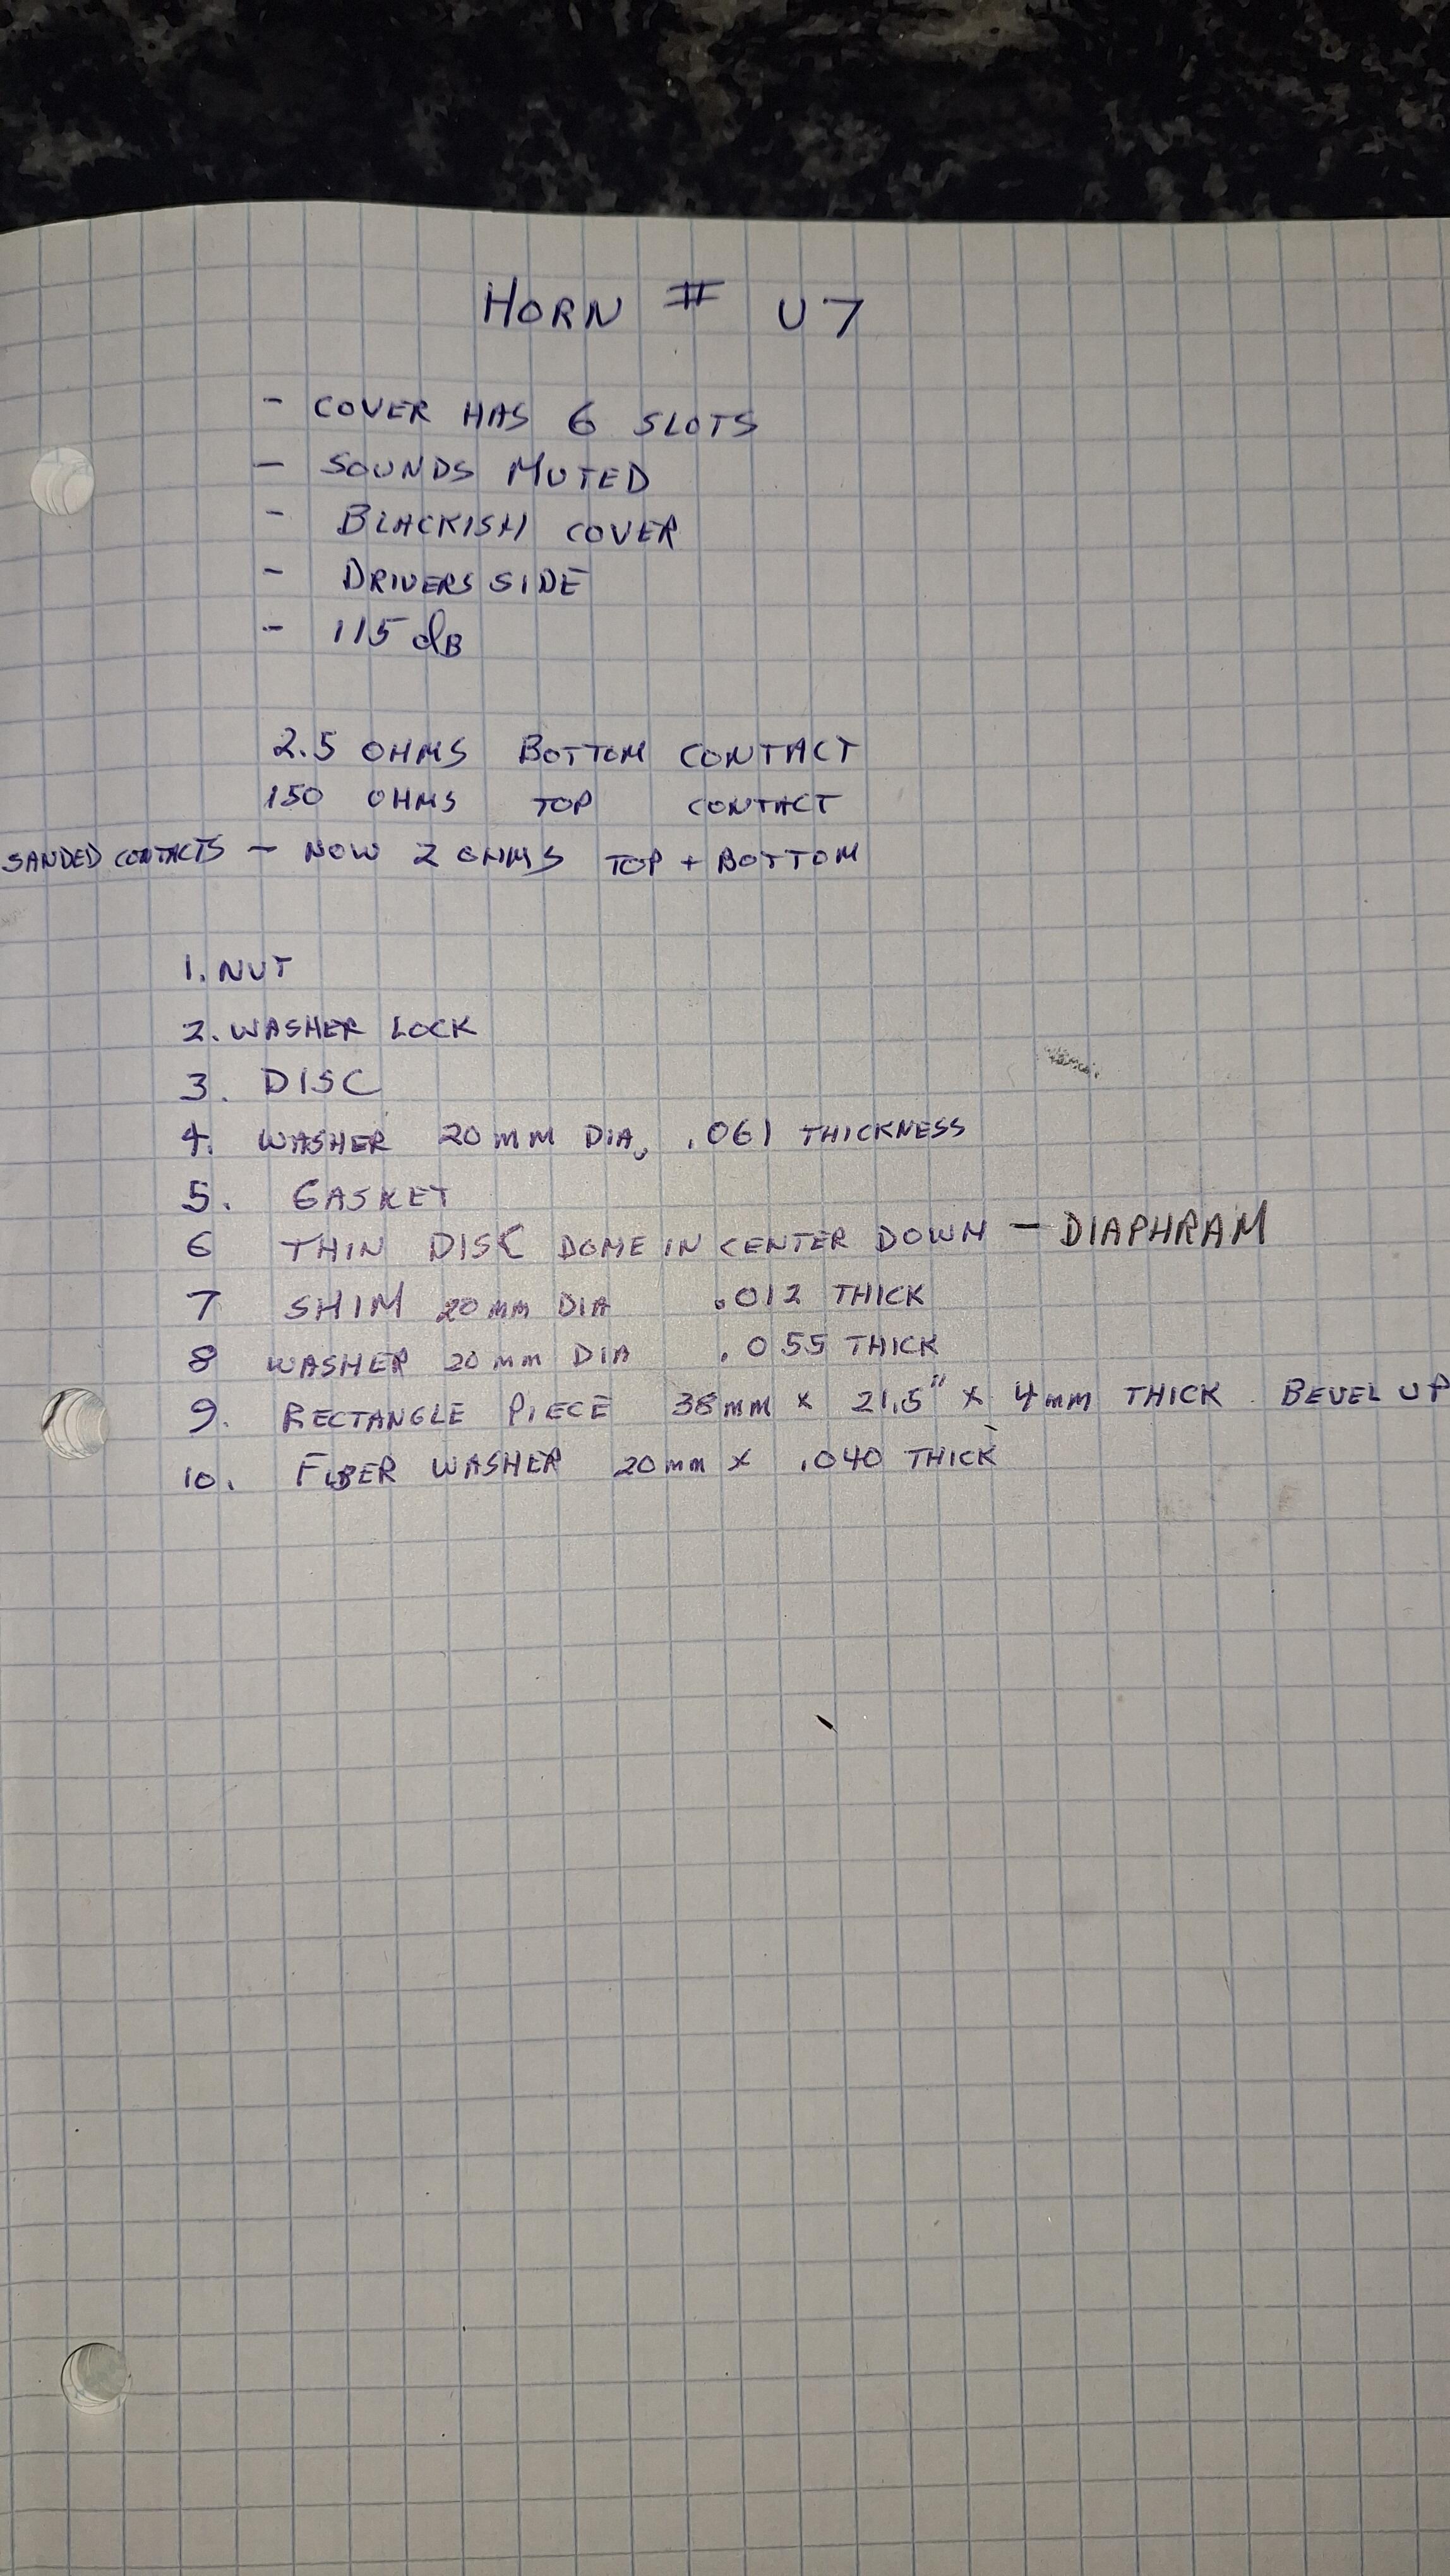 HORN # U7
- COVER HAS 6 SLOTS
- SOUNDS MUTED
- BLACKISH COVER
- DRIVERS SIDE
- 115 dB
2.5 OHMS BOTTOM CONTACT
150 OHMS TOP CONTACT
SANDED CONTACTS - NOW 2 OHMS TOP + BOTTOM
1. NUT
2. WASHER LOCK
3. DISC
4. WASHER 20mm DIA, .061 THICKNESS
5. GASKET
6 THIN DISC DOME IN CENTER DOWN - DIAPHRAM
7 SHIM 20mm DIA .012 THICK
8 WASHER 20mm DIA .055 THICK
9. RECTANGLE PIECE 38mm x 21.5" x 4mm THICK. BEVEL UP
10. FIBER WASHER 20mm x .040 THICK